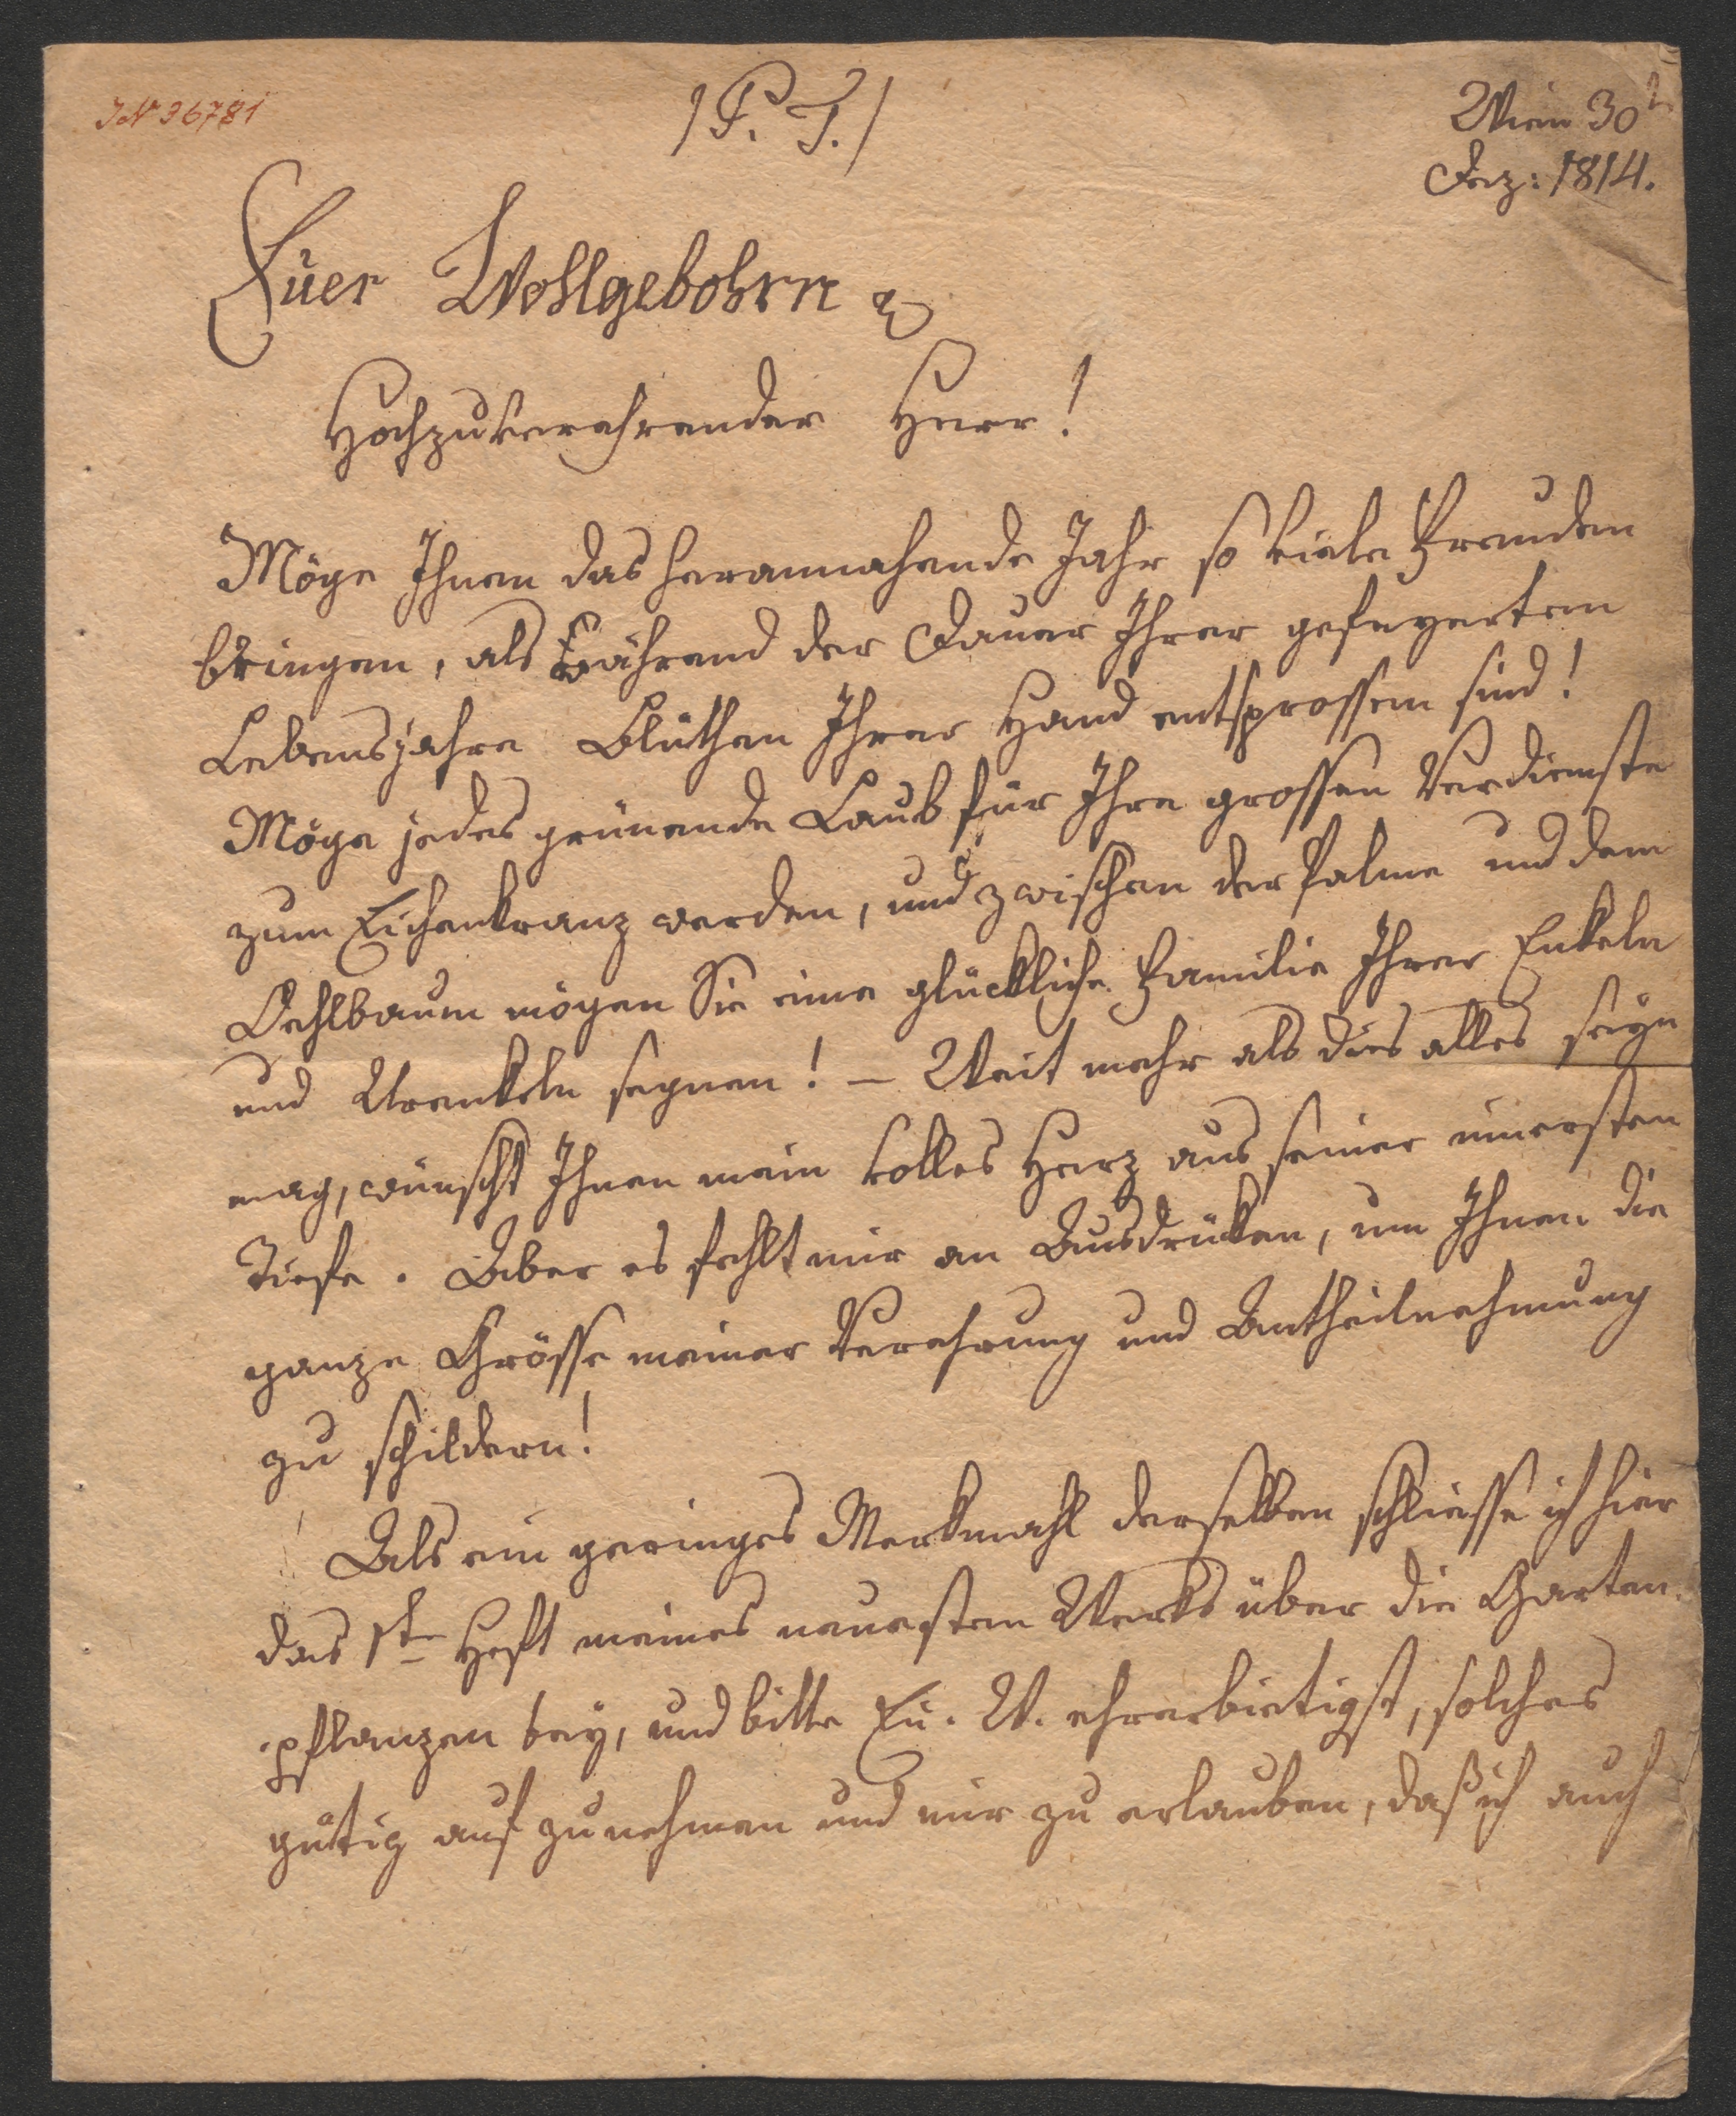 IN 36781
/P. T./
Wien 30t
Dez: 1814.
Euer Wohlgebohrn
Hochzuverehrender Herr!
Möge Ihnen das herannahende Jahr so viele Freuden
bringen, als während der Dauer Ihrer gefeyerten
Lebensjahre Blüthen Ihrer Hand entsprossen sind!
Möge jedes grünende Laub für Ihre grossen Verdienste
zum Eichenkranz werden, und zwischen der Palme und dem
Oehlbaum mögen Sie eine glückliche Familie Ihrer Enkeln
und Urenkeln segnen! – Weit mehr als dies alles seyn
mag, wünscht Ihnen mein volles Herz aus seiner innersten
Tiefe. Aber es fehlt mir an Ausdrücken, um Ihnen die
ganze Grösse meiner Verehrung und Antheilnehmung
zu schildern!
Als ein geringes Merkmahl derselben schliesse ich hier
das 1te Heft meines neuesten Werks über die Garten-
pflanzen bey, und bitte Eu. W. ehrerbietigst, solches
gütig aufzunehmen und mir zu erlauben, daß ich auch